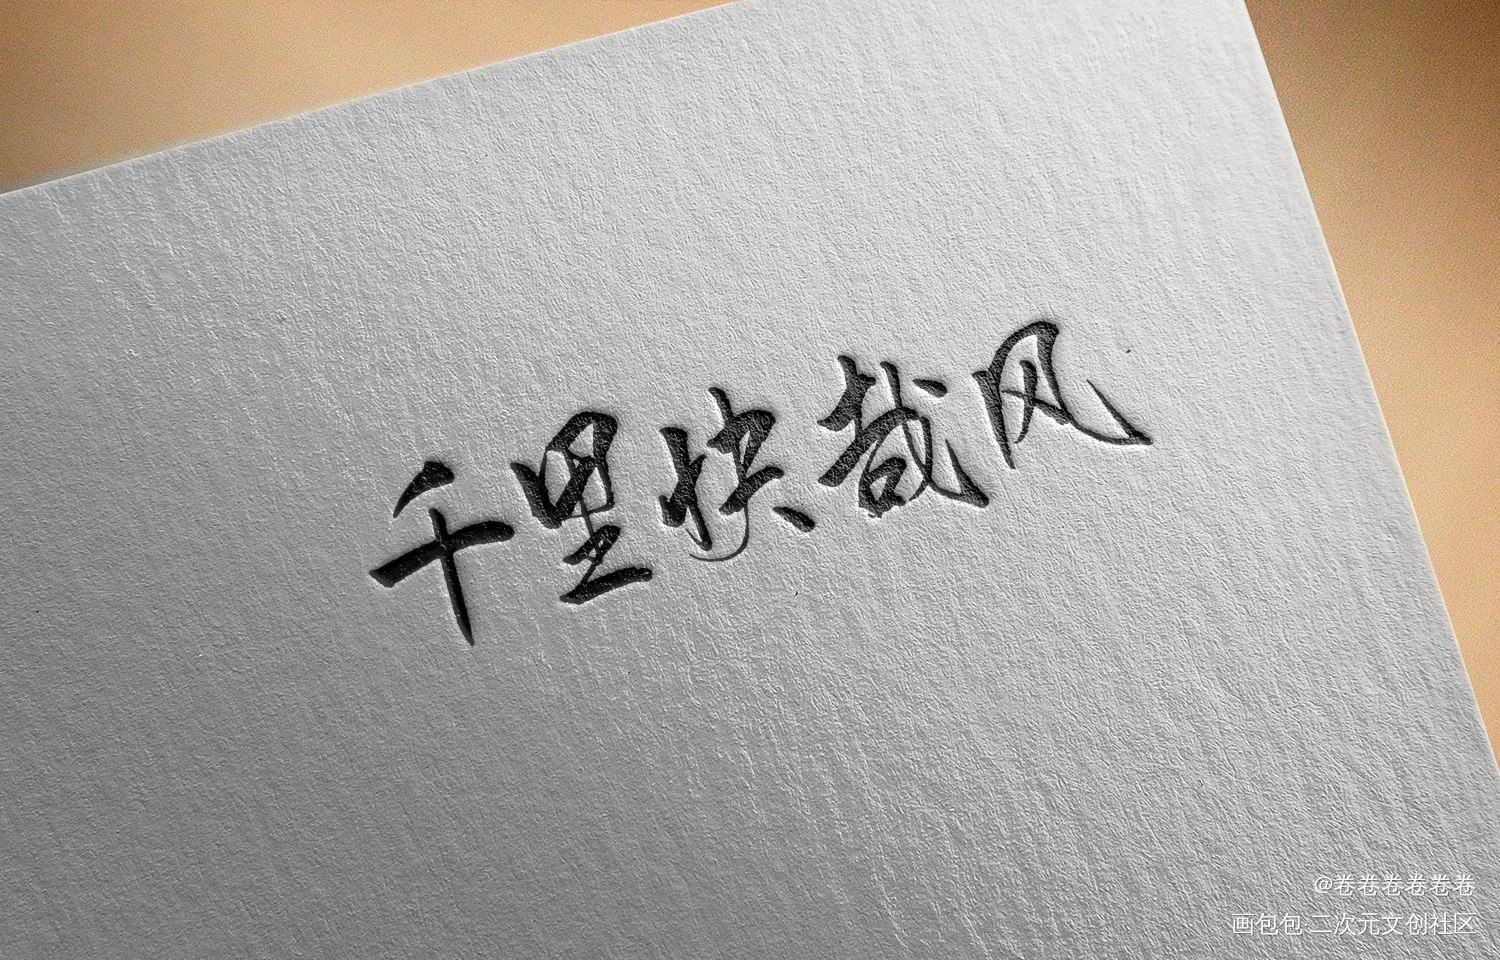 千里快哉风
@卷卷卷卷卷卷
画包包·二次元文创社区